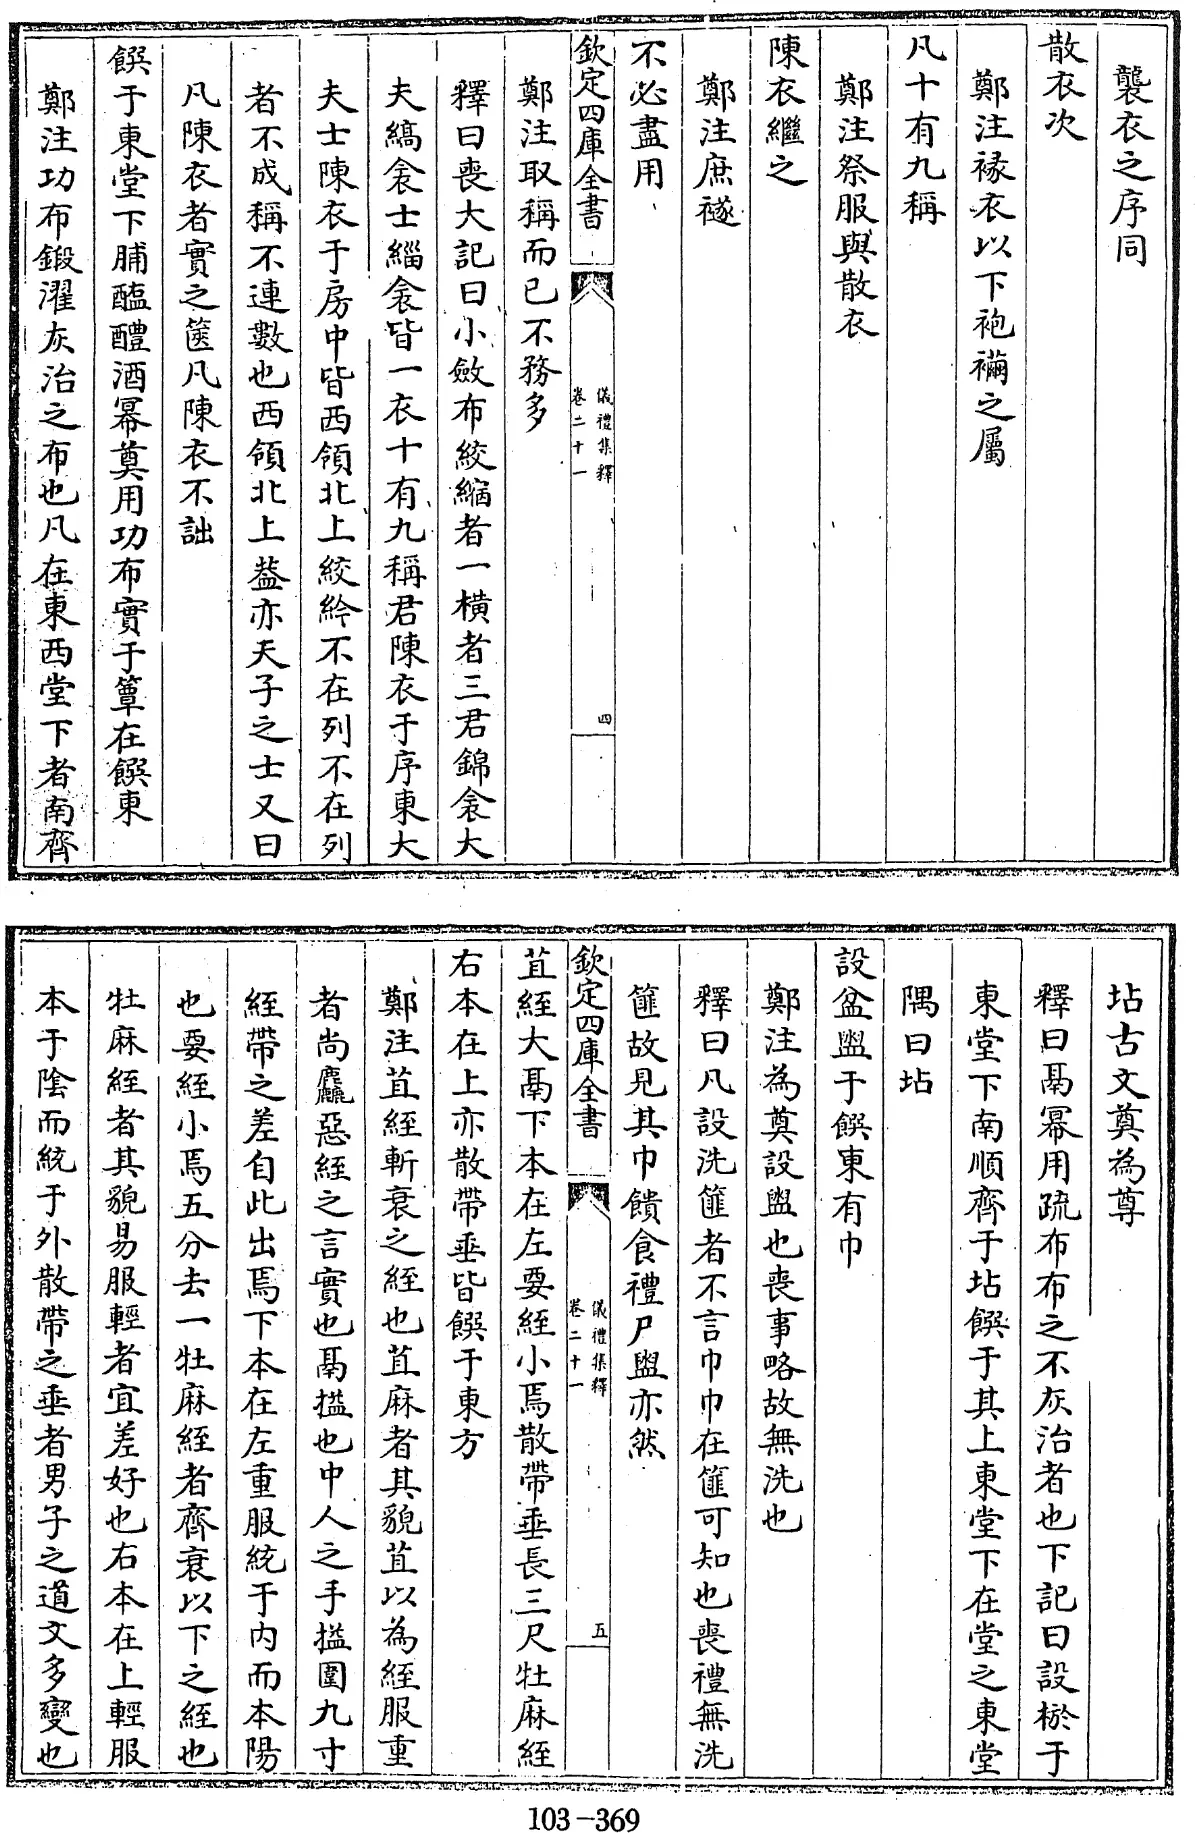 襲衣之序同
散衣次
鄭注褖衣以下袍襺之屬
凡十有九稱
鄭注祭服與散衣
陳衣繼之
鄭注庶襚
不必盡用
欽定四庫全書
儀禮集釋
卷二十一
四
鄭注取稱而已不務多
釋曰喪大記曰小斂布絞縮者一橫者三君錦衾大
夫縞衾士緇衾皆一衣十有九稱君陳衣于序東大
夫士陳衣于房中皆西領北上絞紟不在列不在列
者不成稱不連數也西領北上葢亦天子之士又曰
凡陳衣者實之篋凡陳衣不詘
饌于東堂下脯醢醴酒冪奠用功布實于簞在饌東
鄭注功布鍛濯灰治之布也凡在東西堂下者南齊
坫古文奠為尊
釋曰鼏冪用疏布布之不灰治者也下記曰設棜于
東堂下南順齊于坫饌于其上東堂下在堂之東堂
隅曰坫
設盆盥于饌東有巾
鄭注為奠設盥也喪事略故無洗也
釋曰凡設洗篚者不言巾巾在篚可知也喪禮無洗
篚故見其巾饋食禮尸盥亦然
欽定四庫全書
儀禮集釋
卷二十一
五
苴絰大鬲下本在左要絰小焉散帶垂長三尺牡麻絰
右本在上亦散帶垂皆饌于東方
鄭注苴絰斬衰之絰也苴麻者其貌苴以為絰服重
者尚麤惡絰之言實也鬲搤也中人之手搤圍九寸
絰帶之差自此出焉下本在左重服統于內而本陽
也要絰小焉五分去一牡麻絰者齊衰以下之絰也
牡麻絰者其貌易服輕者宜差好也右本在上輕服
本于陰而統于外散帶之垂者男子之道文多變也
103-369